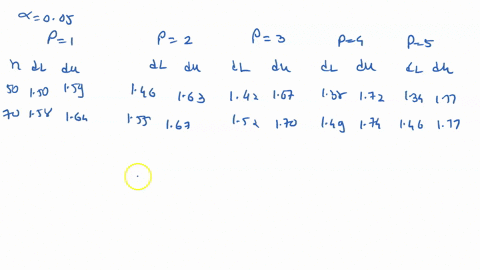 α=0.05
P=1 P=2 P=3 P=4 P=5
n dL du dL du dL du dL du dL du
50 1.50 1.59 1.46 1.63 1.42 1.67 1.38 1.72 1.34 1.77
70 1.58 1.64 1.55 1.67 1.52 1.70 1.49 1.74 1.46 1.77